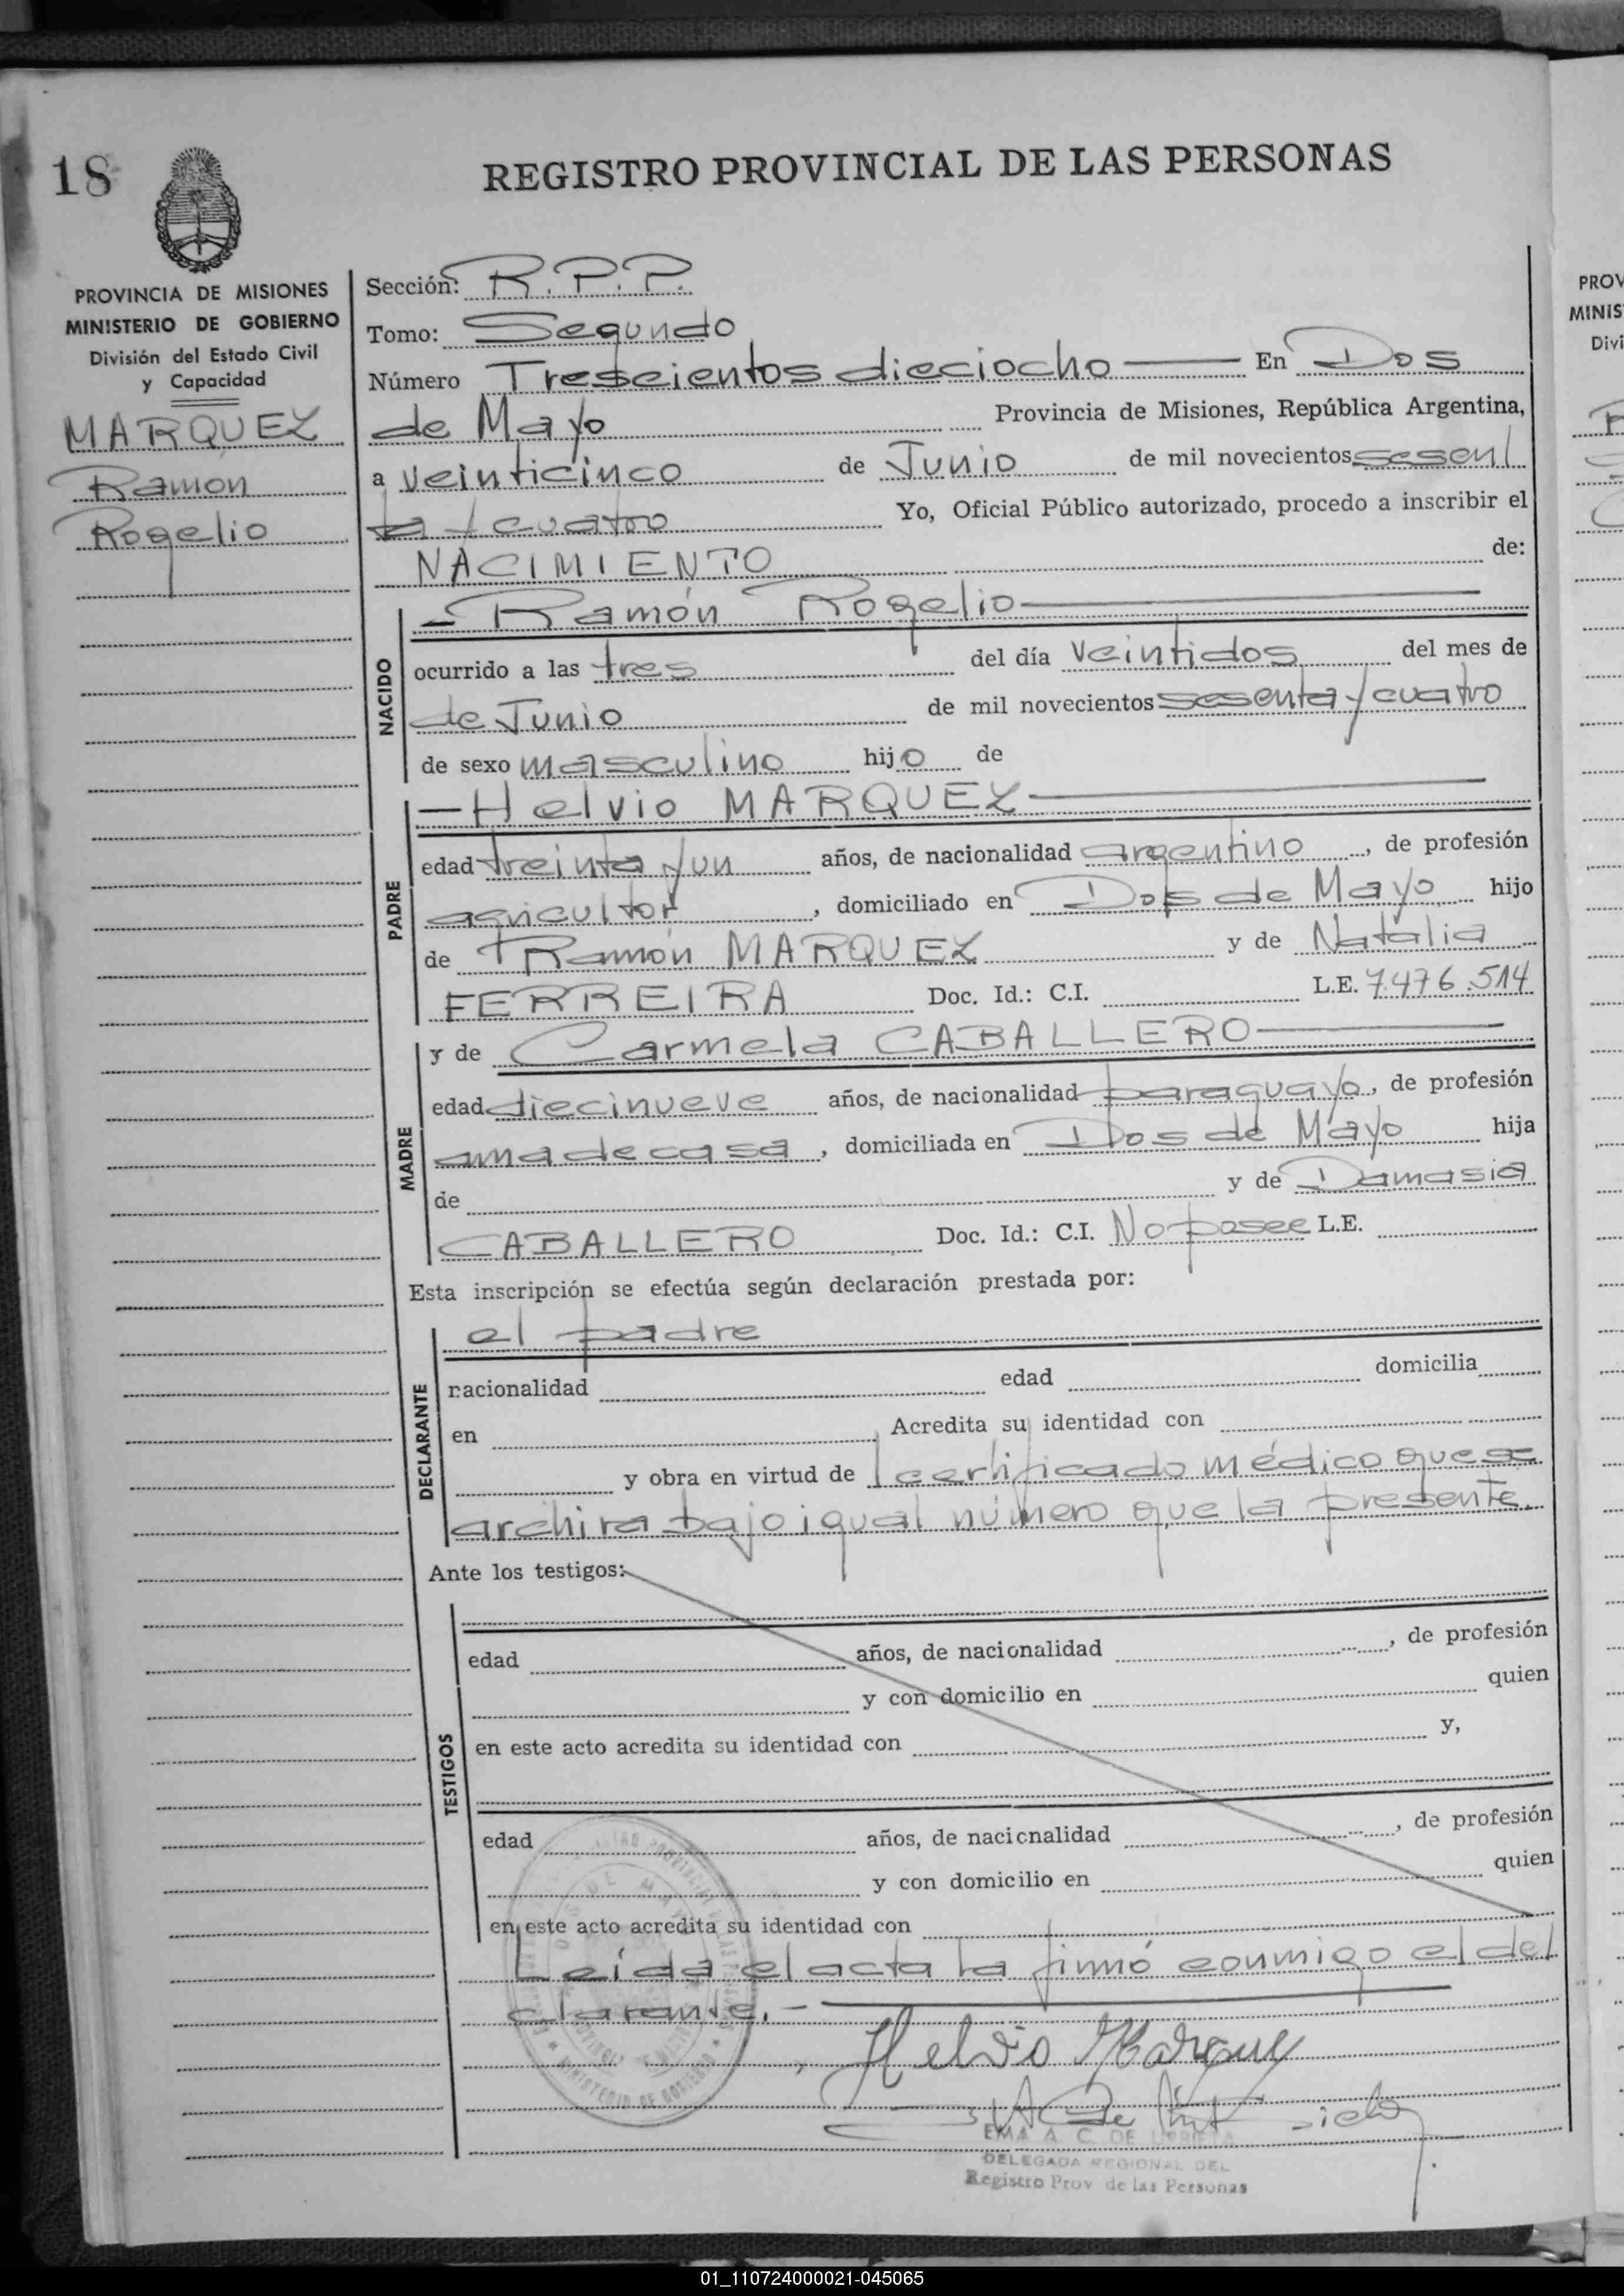 18
REGISTRO PROVINCIAL DE LAS PERSONAS
PROVINCIA DE MISIONES
MINISTERIO DE GOBIERNO
División del Estado Civil
y Capacidad
MARQUEZ
Ramon
Rogelio
Sección: R.P.P.
Tomo: Segundo
Número Trescientos dieciocho En Dos
de Mayo Provincia de Misiones, República Argentina,
a veinticinco de Junio de mil novecientos sesen
ta y cuatro Yo, Oficial Público autorizado, procedo a inscribir el
NACIMIENTO de:
NACIDO
Ramón Rogelio
ocurrido a las tres del día veintidos del mes de
de Junio de mil novecientos sesenta y cuatro
de sexo masculino hijo de
PADRE
Helvio MARQUEZ
edad treinta y un años, de nacionalidad argentino, de profesión
agricultor, domiciliado en Dos de Mayo hijo
de Ramón MARQUEZ y de Natalia
FERREIRA Doc. Id.: C.I. L.E. 7.476.514
MADRE
y de Carmela CABALLERO
edad diecinueve años, de nacionalidad paraguaya, de profesión
ama de casa, domiciliada en Dos de Mayo hija
de y de Damasia
CABALLERO Doc. Id.: C.I. No posee L.E.
Esta inscripción se efectúa según declaración prestada por:
DECLARANTE
el padre
nacionalidad edad domicilia
en Acredita su identidad con
y obra en virtud de certificado médico que se
archiva bajo igual número que la presente.
Ante los testigos:
TESTIGOS
edad años, de nacionalidad , de profesión
y con domicilio en quien
en este acto acredita su identidad con y,
edad años, de nacionalidad , de profesión
y con domicilio en quien
en este acto acredita su identidad con
Leída el acta la firmó conmigo el de
clarante.-
Helvio Marquez
EMA A. C. DE
DELEGADA REGIONAL DEL
Registro Prov de las Personas
MINISTERIO DE GOBIERNO
PROV
MINIS
Divi
01_110724000021-045065